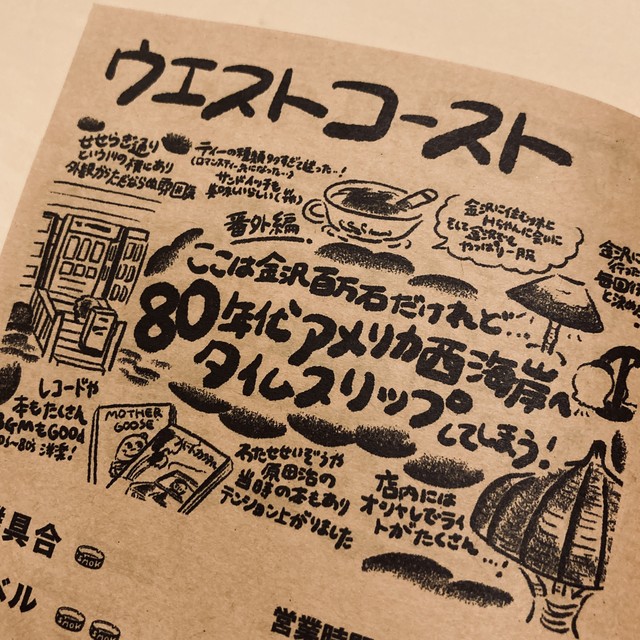 ウエストコースト
せせらぎ通り
という川の横にあり
外観がただならぬ雰囲気
ティーの種類多すぎて迷った…!
(ロマンティーヌにだった…)
サンドイッチも
美味しいらしい(汗)
番外編
金沢に住む姉と
Mちゃんに会いに
そして金沢でも
やっぱり一服
ここは金沢百万石だけれど…!
80年代アメリカ西海岸へ
タイムスリップ
してしまう!
レコードや
本もたくさん
BGMもGOOD
洋楽!
MOTHER
GOOSE
わたせせいぞうや
原田治の
当時の本もあり
テンション上がりました
店内には
オシャレでライ
トがたくさん…!
具合
ベル
営業時間